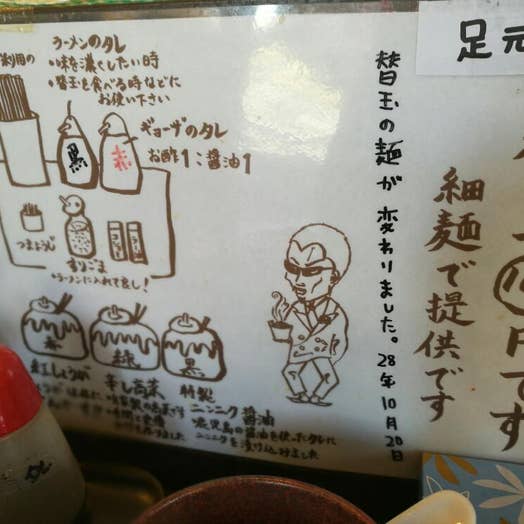 ラーメンのタレ
・味を濃くしたい時
・替玉を食べる時などに
お使い下さい
黒
赤
ギョーザのタレ
お酢1:醤油1
つまようじ
すりごま
・ラーメンに入れて良し!
赤
緑
黒
紅しょうが
辛し高菜
特製
ニンニク醤油
鹿児島の醤油を使ったタレに
ニンニクを漬け込みました
替玉の麺が変わりました。28年10月20日
細麺で提供です
円です
足元